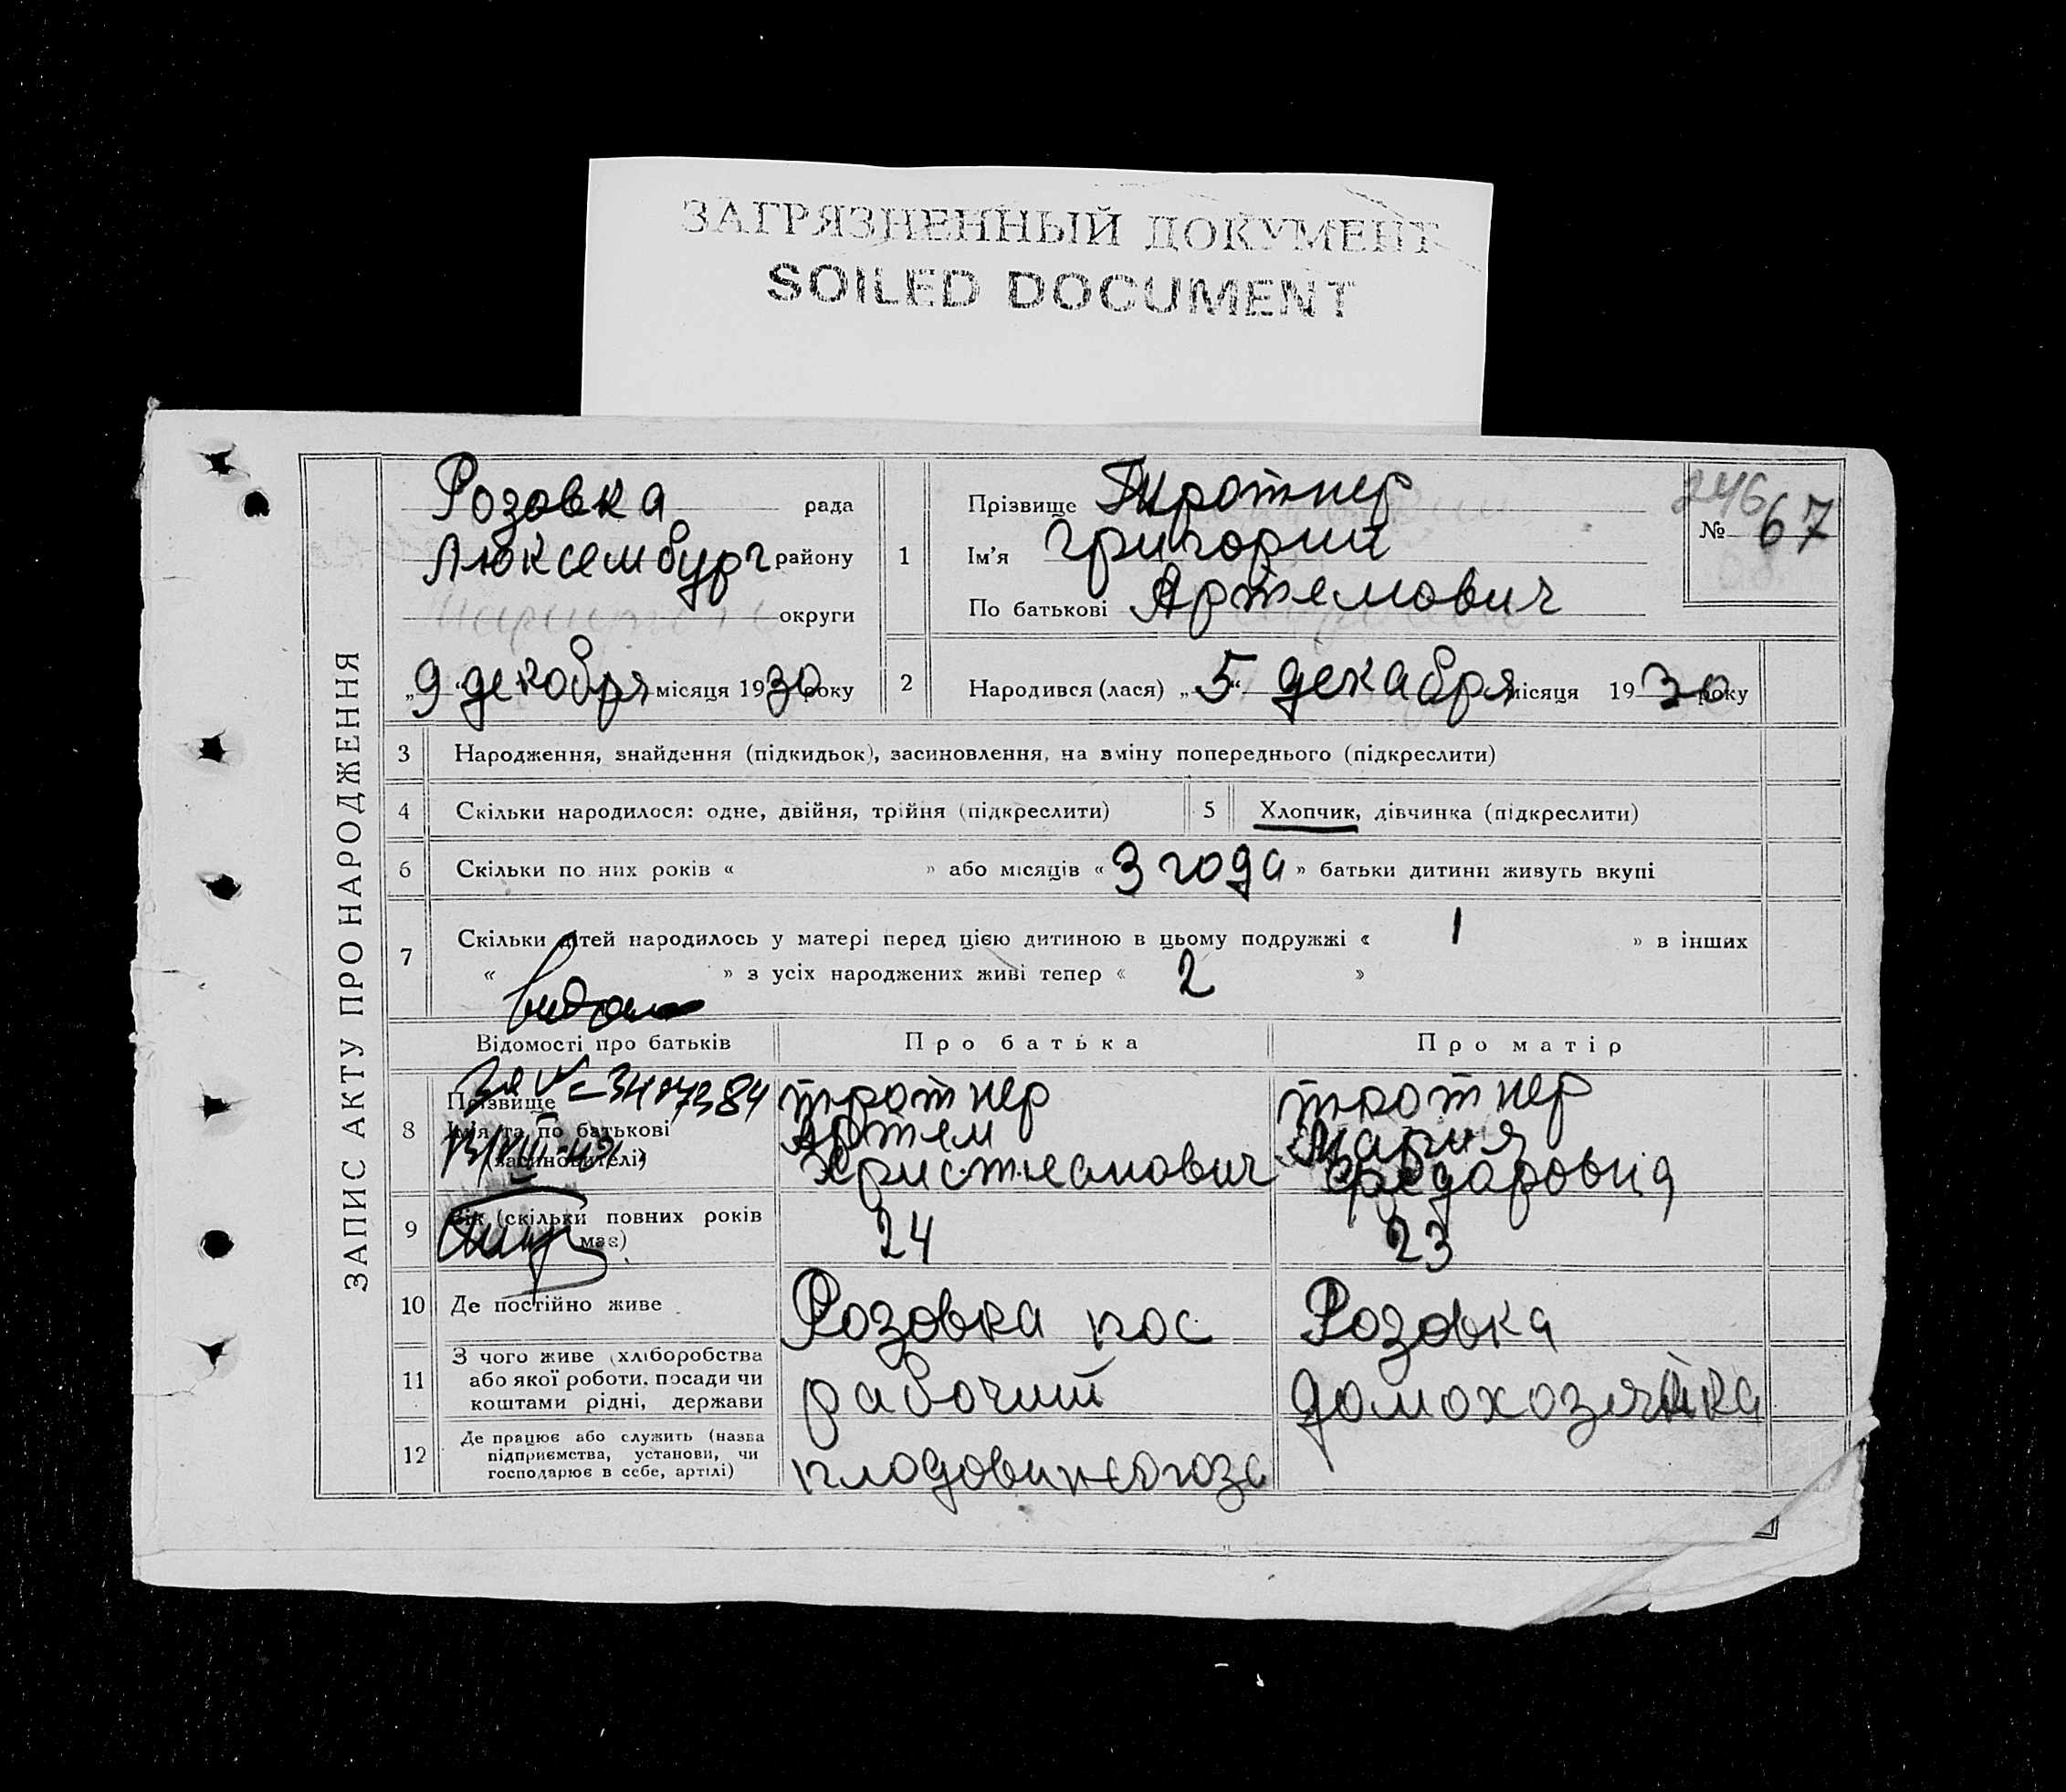 ЗАГРЯЗНЕННЫЙ ДОКУМЕНТ
SOILED DOCUMENT
ЗАПИС АКТУ ПРО НАРОДЖЕННЯ
Розовка рада
Люксембург району
округи
„9“ декобря місяця 1930 року
1
Прізвище Тротнер
Ім'я Григорий
По батькові Артемович
246
№ 67
2 Народився (лася) „5“ декабря місяця 1930 року
3 Народження, знайдення (підкидьок), засиновлення, на зміну попереднього (підкреслити)
4 Скільки народилося: одне, двійня, трійня (підкреслити)
5 Хлопчик, дівчинка (підкреслити)
6 Скільки по них років « » або місяців « 3 года » батьки дитини живуть вкупі
7 Скільки дітей народилось у матері перед цією дитиною в цьому подружжі « 1 » в інших
« » з усіх народжених живі тепер « 2 »
Відомості про батьків Про батька Про матір
8 Прізвище
Ім'я та по батькові
(засиновителі)
№ 3407384
тротнер
Артем
Християнович
тротнер
Мария
Фредаровна
9 Вік (скільки повних років має) 24 23
10 Де постійно живе Розовка пос Розовка
11 З чого живе (хліборобства
або якої роботи, посади чи
коштами рідні, держави
рабочий домохозяйка
12 Де працює або служить (назва
підприємства, установи, чи
господарює в себе, артілі)